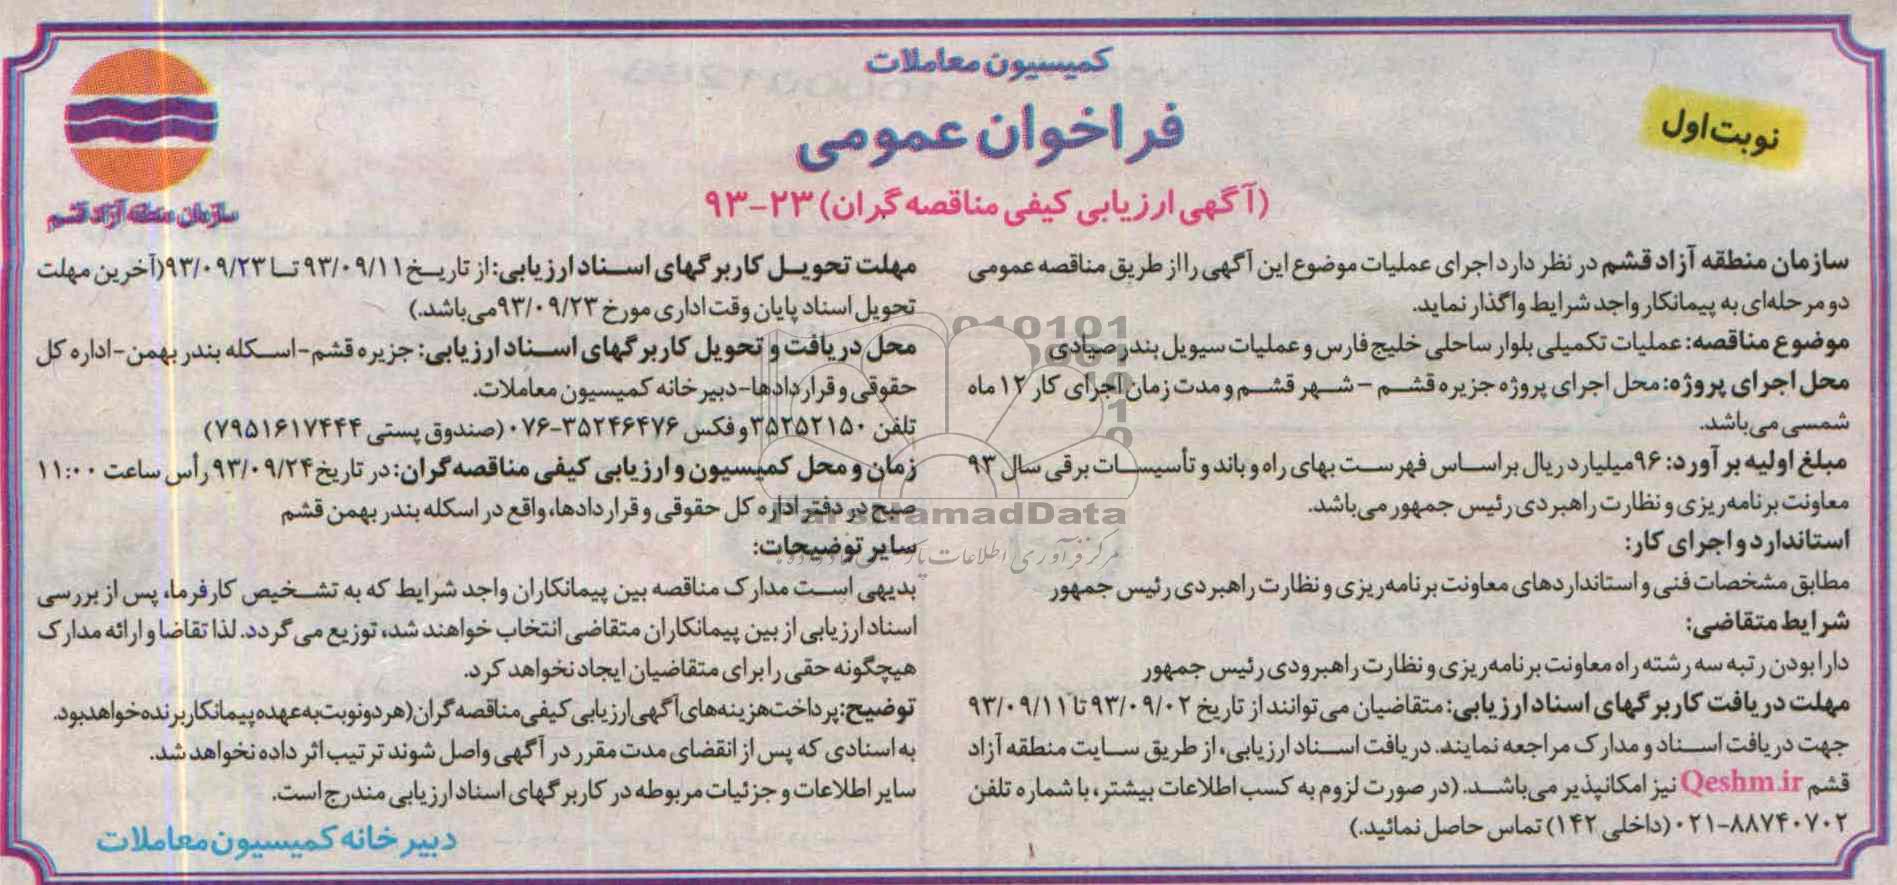 کمیسیون معاملات
فراخوان عمومی
نوبت اول
(آگهی ارزیابی کیفی مناقصه گران) ۲۳-۹۳
سازمان منطقه آزاد قشم
سازمان منطقه آزاد قشم در نظر دارد اجرای عملیات موضوع این آگهی را از طریق مناقصه عمومی
دو مرحله‌ای به پیمانکار واجد شرایط واگذار نماید.
موضوع مناقصه: عملیات تکمیلی بلوار ساحلی خلیج فارس و عملیات سیویل بندر صیادی
محل اجرای پروژه: محل اجرای پروژه جزیره قشم - شهر قشم و مدت زمان اجرای کار ۱۲ ماه
شمسی می‌باشد.
مبلغ اولیه برآورد: ۹۶میلیارد ریال براساس فهرست بهای راه و باند و تأسیسات برقی سال ۹۳
معاونت برنامه‌ریزی و نظارت راهبردی رئیس جمهور می‌باشد.
استاندارد و اجرای کار:
مطابق مشخصات فنی و استانداردهای معاونت برنامه‌ریزی و نظارت راهبردی رئیس جمهور
شرایط متقاضی:
دارا بودن رتبه سه رشته راه معاونت برنامه‌ریزی و نظارت راهبرودی رئیس جمهور
مهلت دریافت کاربرگهای اسناد ارزیابی: متقاضیان می‌توانند از تاریخ ۹۳/۰۹/۰۲ تا ۹۳/۰۹/۱۱
جهت دریافت اسناد و مدارک مراجعه نمایند. دریافت اسناد ارزیابی، از طریق سایت منطقه آزاد
قشم Qeshm.ir نیز امکانپذیر می‌باشد. (در صورت لزوم به کسب اطلاعات بیشتر، با شماره تلفن
۰۲۱-۸۸۷۴۰۷۰۲ (داخلی ۱۴۲) تماس حاصل نمائید.)
مهلت تحویل کاربرگهای اسناد ارزیابی: از تاریخ ۹۳/۰۹/۱۱ تا ۹۳/۰۹/۲۳(آخرین مهلت
تحویل اسناد پایان وقت اداری مورخ ۹۳/۰۹/۲۳می‌باشد.)
محل دریافت و تحویل کاربرگهای اسناد ارزیابی: جزیره قشم-اسکله بندر بهمن-اداره کل
حقوقی و قراردادها-دبیرخانه کمیسیون معاملات.
تلفن ۳۵۲۵۲۱۵۰ و فکس ۳۵۲۴۶۴۷۶-۰۷۶ (صندوق پستی ۷۹۵۱۶۱۷۴۴۴)
زمان و محل کمیسیون و ارزیابی کیفی مناقصه‌گران: در تاریخ ۹۳/۰۹/۲۴ رأس ساعت ۱۱:۰۰
صبح در دفتر اداره کل حقوقی و قراردادها، واقع در اسکله بندر بهمن قشم
سایر توضیحات:
بدیهی است مدارک مناقصه بین پیمانکاران واجد شرایط که به تشخیص کارفرما، پس از بررسی
اسناد ارزیابی از بین پیمانکاران متقاضی انتخاب خواهند شد، توزیع می‌گردد. لذا تقاضا و ارائه مدارک
هیچگونه حقی را برای متقاضیان ایجاد نخواهد کرد.
توضیح: پرداخت هزینه‌های آگهی ارزیابی کیفی مناقصه گران (هر دو نوبت به عهده پیمانکار برنده خواهد بود.
به اسنادی که پس از انقضای مدت مقرر در آگهی واصل شوند ترتیب اثر داده نخواهد شد.
سایر اطلاعات و جزئیات مربوطه در کاربرگهای اسناد ارزیابی مندرج است.
دبیرخانه کمیسیون معاملات
ParsNamadData